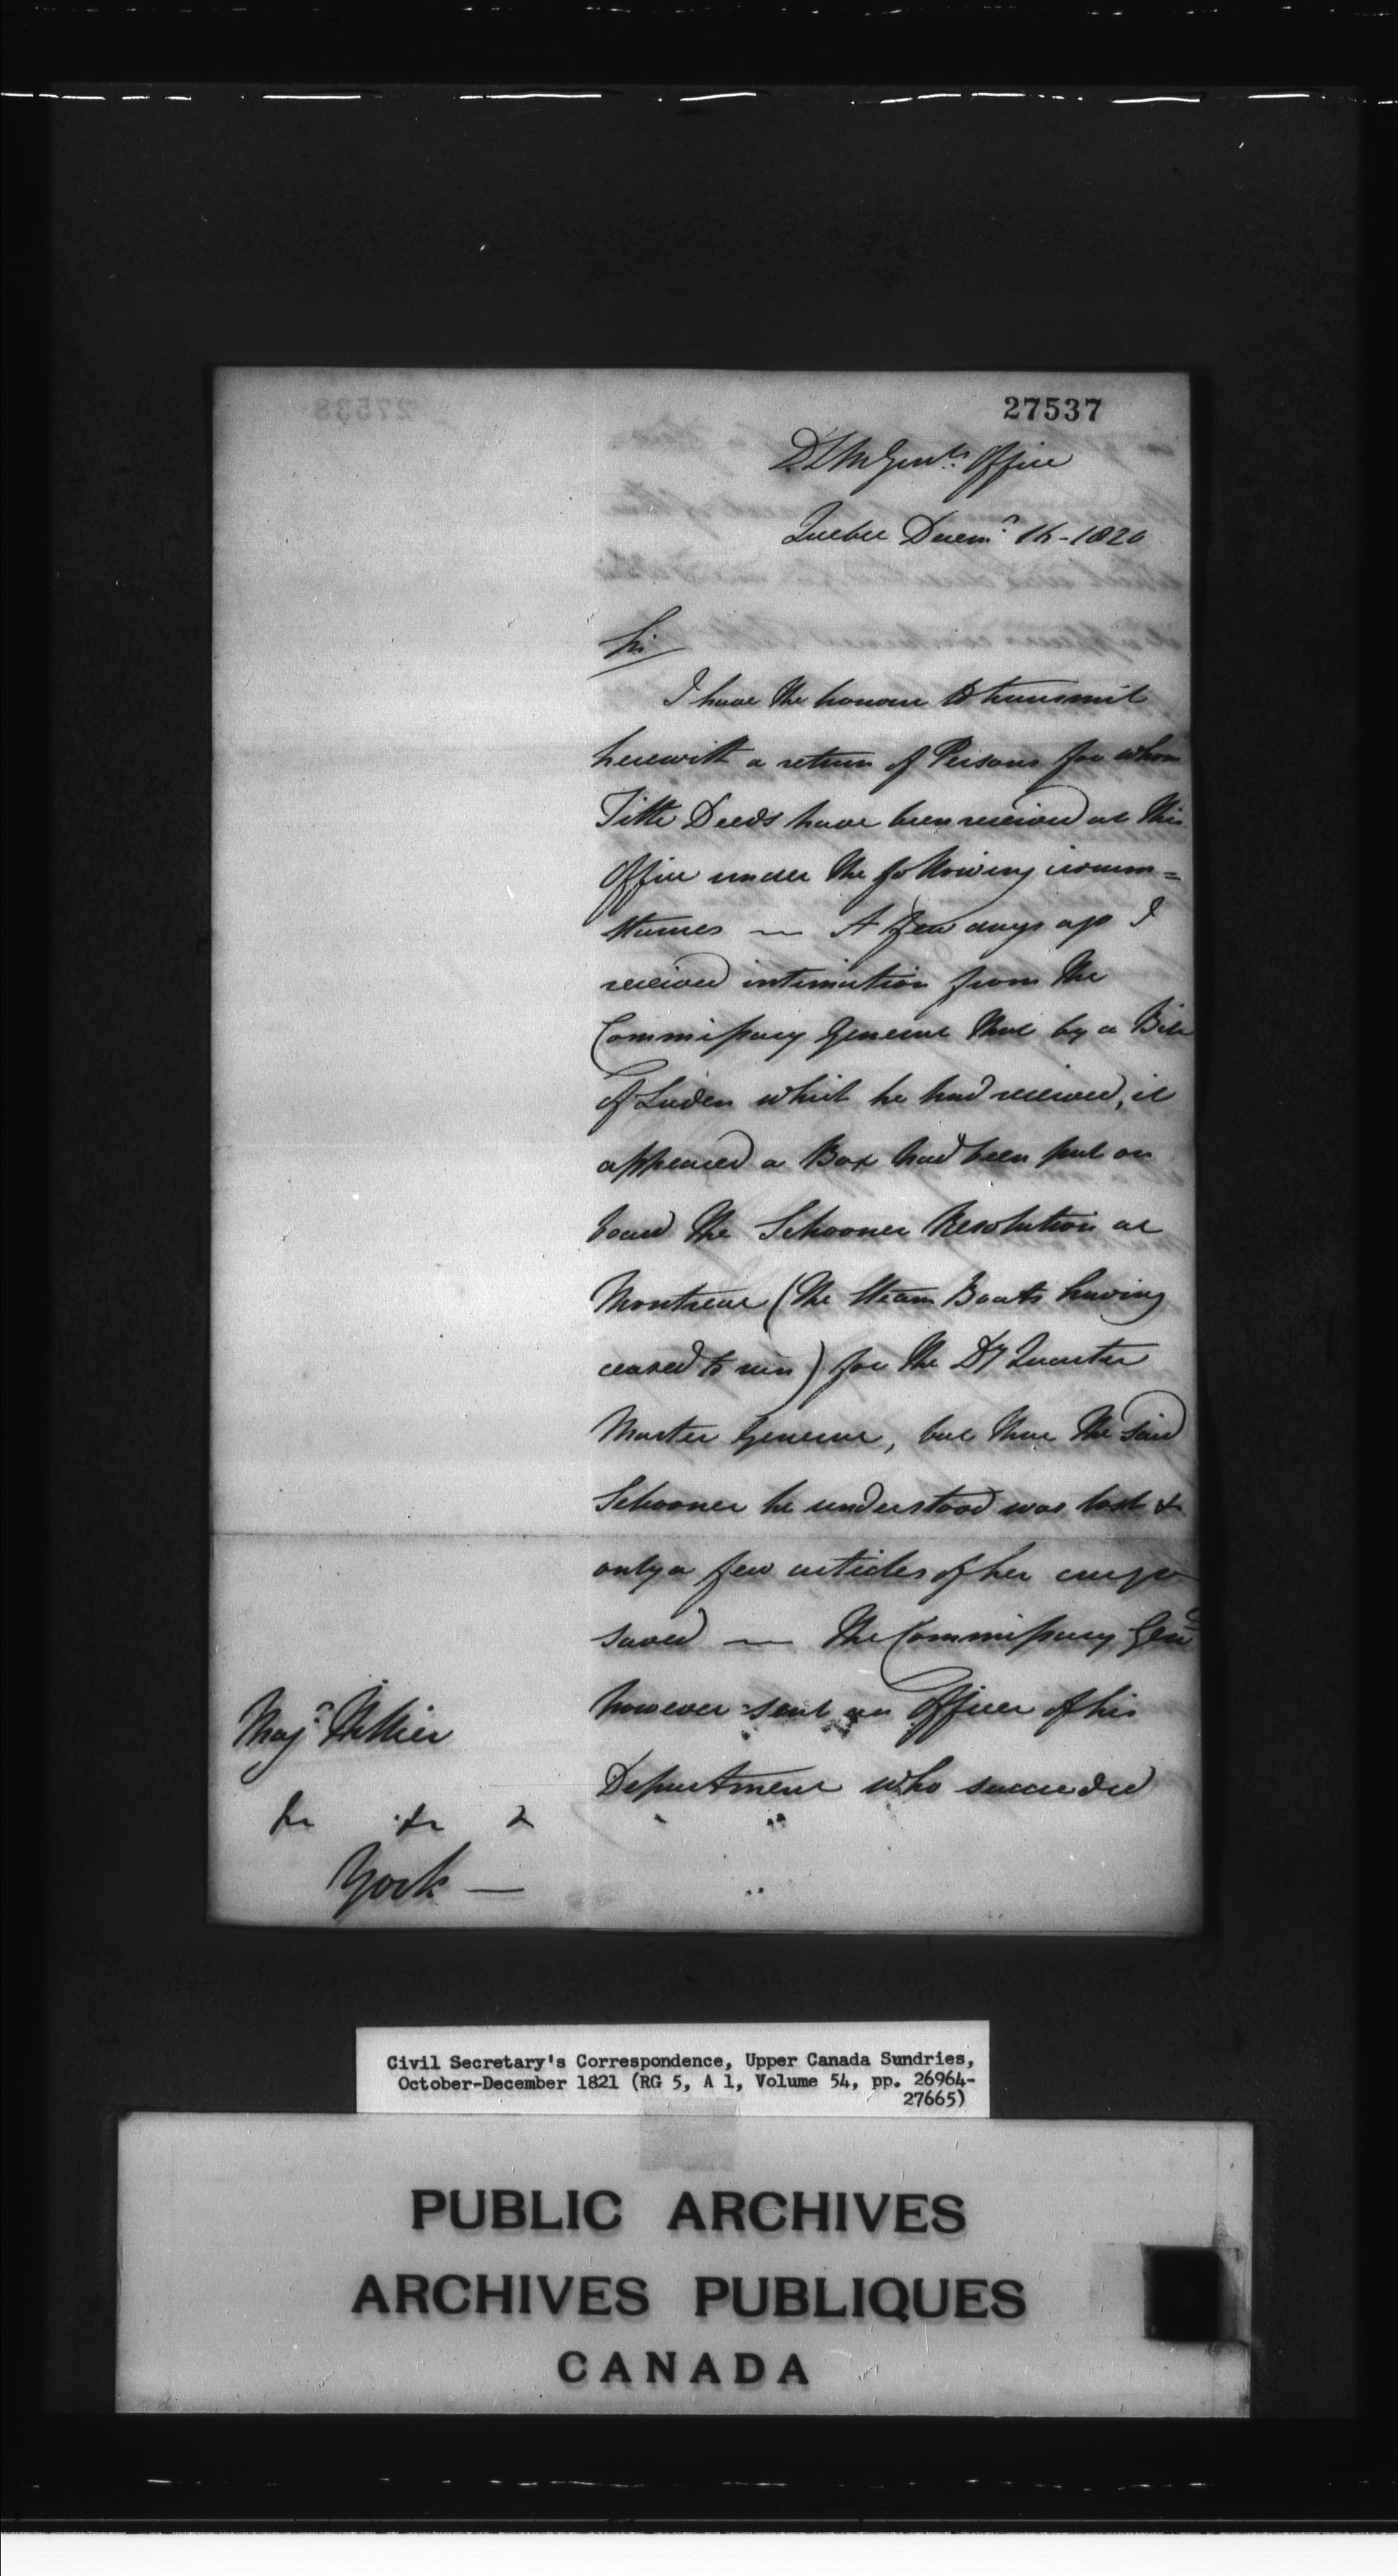 27537
DQMGenls. Office
Quebec Decemr. 16-1820
Sir
I have the honour to transmit
herewith a return of Persons for whom
Title Deeds have been received at this
Office under the following circum=
stances — A few days ago I
received intimation from the
Commissary General that by a Bill
of Laden which he had received, it
appeared a Box had been put on
board the Schooner Resolution at
Montreal (the Steam Boats having
ceased to run) for the Dy Quarter
Master General, but that the said
Schooner he understood was lost &
only a few articles of her cargo
saved — The Commissary Genl
however sent an Officer of his
Department who succeeded
Majr. Hillier
&c &c &
York —
Civil Secretary's Correspondence, Upper Canada Sundries,
October-December 1821 (RG 5, A 1, Volume 54, pp. 26964-
27665)
PUBLIC ARCHIVES
ARCHIVES PUBLIQUES
CANADA